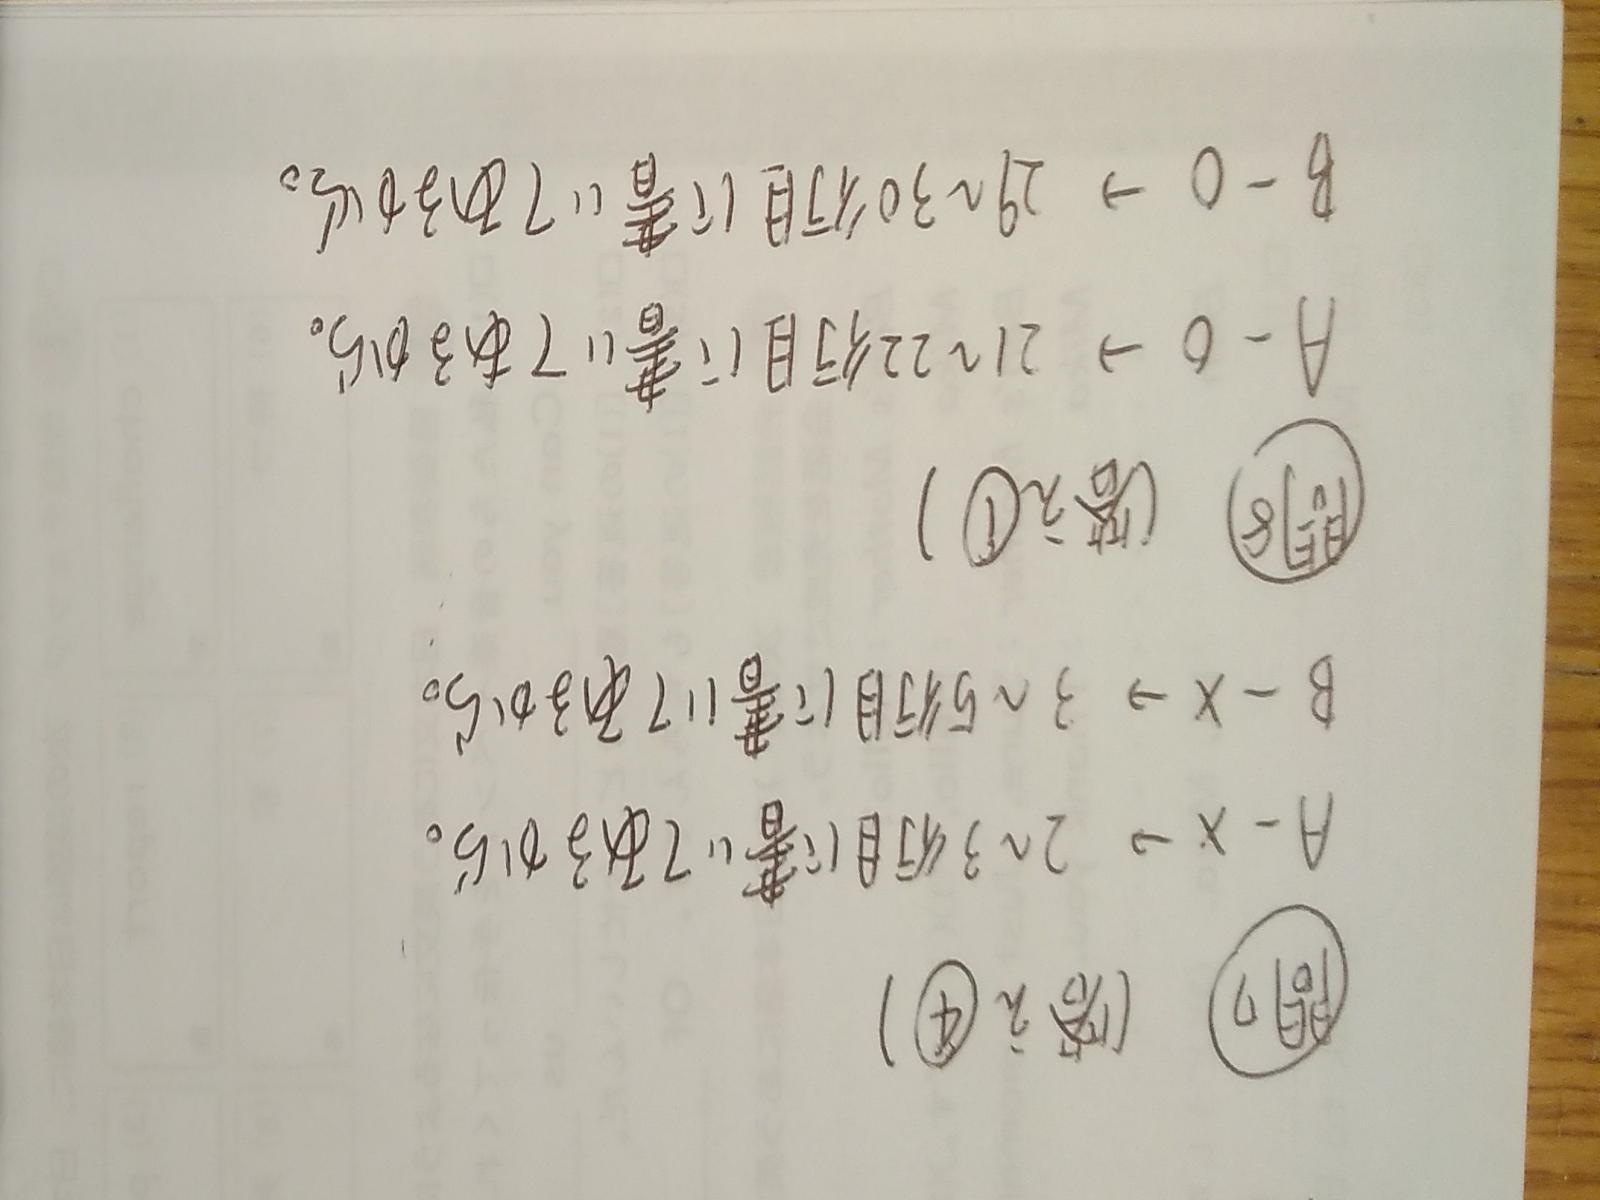 問7 (答え④)
A - × → 2~3行目に書いてあるから。
B - × → 3~5行目に書いてあるから。
問8 (答え①)
A - ○ → 21~22行目に書いてあるから。
B - ○ → 29~30行目に書いてあるから。